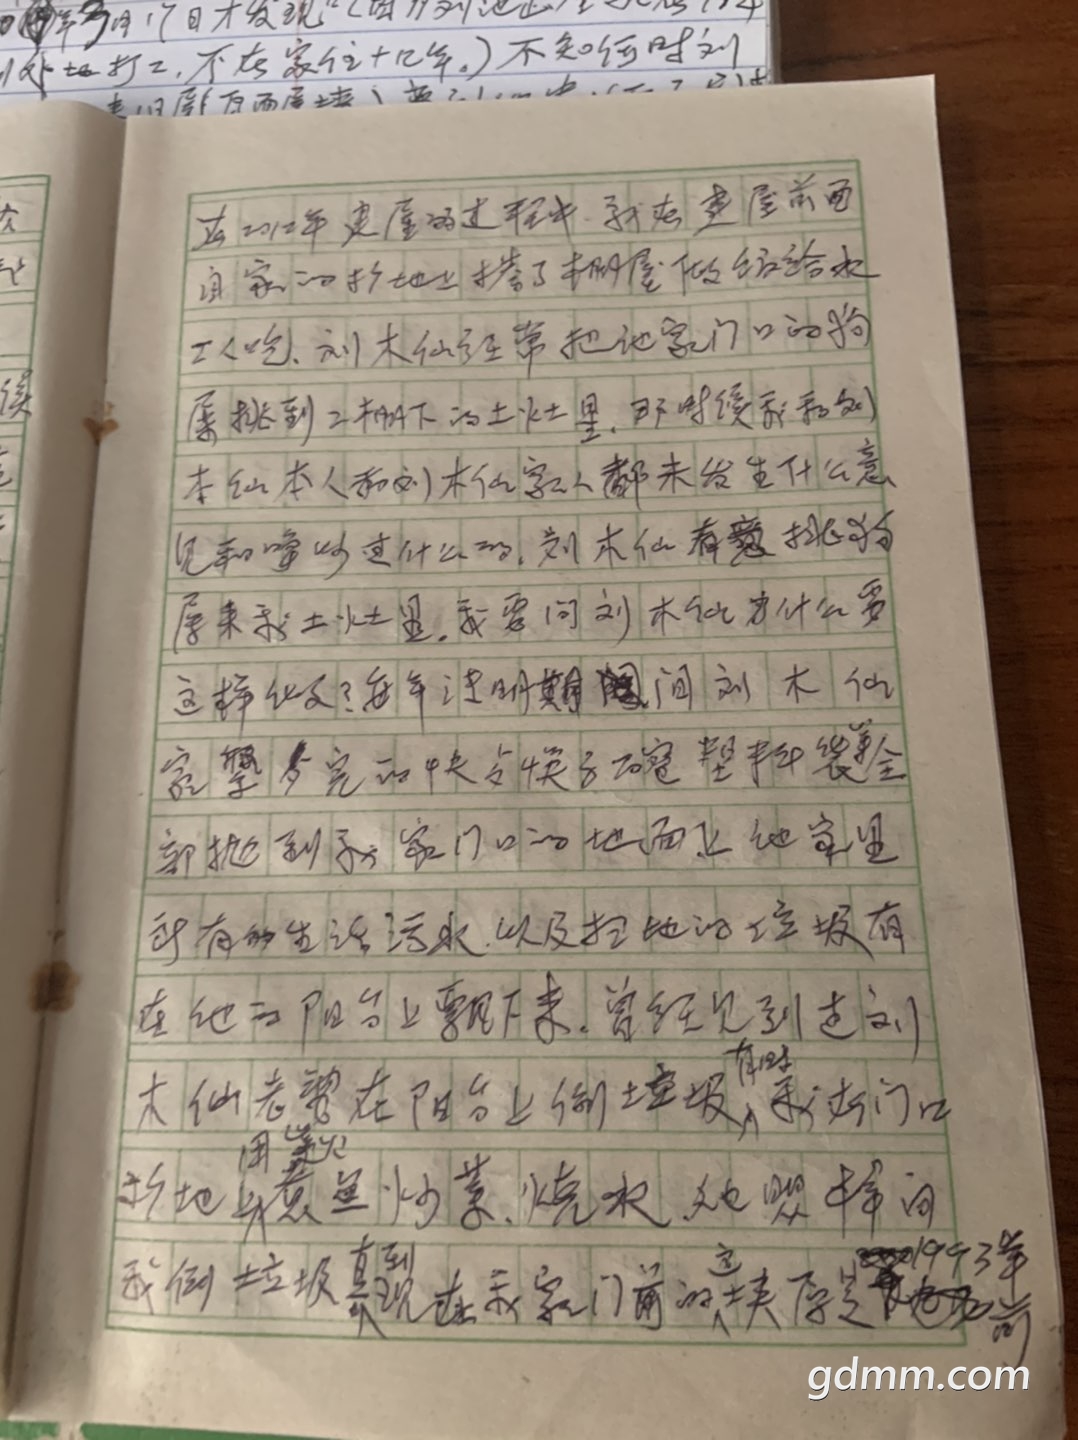 年3月17日才发现
外地打工,不在家住十几年。)不知何时刘
在2012年建屋的过程中.我在建屋前面
自家的抄地上搭了棚屋做给水
工人吃.刘木仙经常把他家门口的狗
屎挑到工棚下的土灶里.那时候我和刘
木仙本人和刘木仙家人都未发生什么意
见和争吵过什么的.刘木仙有意挑狗
屎来我土灶里.我要问刘木仙为什么要
这样做?每年清明期间刘木仙
家祭完的筷子碗塑料袋全
部抛到我家门口的地面上他家里
所有的生活污水.以及扫地的垃圾有
在他的阳台上飘下来.曾经见到过刘
木仙老婆在阳台上倒垃圾有时我在门口
抄地上用柴火煮鱼炒菜.烧水她照样向
我倒垃圾直到现在我家门前的这块厝是1993年
前
gdmm.com